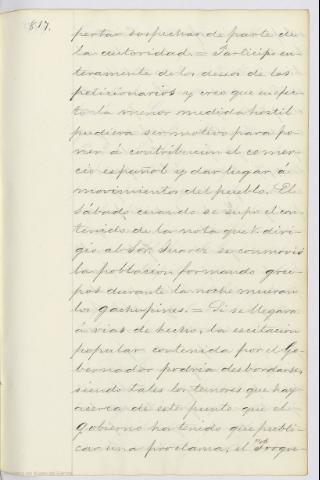 817.
pertar sospechas de parte de
la autoridad. = Participo en-
teramente de los deseos de los
peticionarios y creo que en efec-
to la menor medida hostil
pudiera ser motivo para po-
ner á contribucion el comer-
cio español y dar lugar á
movimientos del pueblo. El
Sábado cuando se supo el con-
tenido de la nota que V. diri-
gio al Sor. Suarez se conmovió
la poblacion formando gru-
pos durante la noche mueran
los gachupines. = Si se llegara
á vias de hecho, la escitacion
popular contenida por el Go-
bernador podria desbordarse,
siendo tales los temores que hay
acerca de este punto que el
Gobierno ha tenido que publi-
car una proclama, el "Progre-